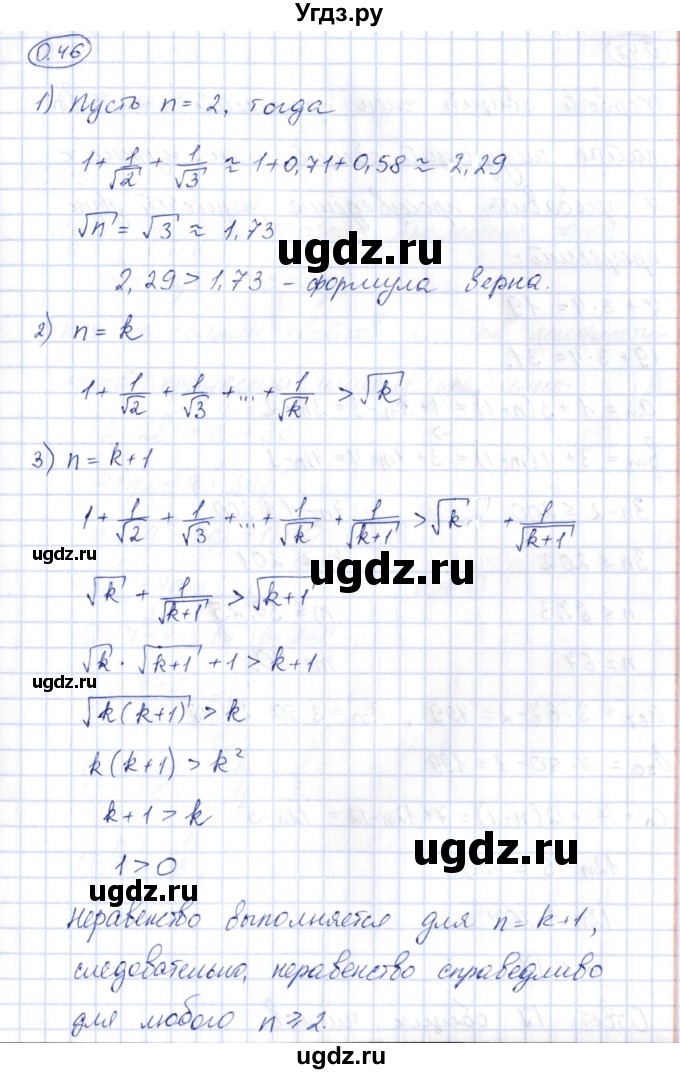 Угдз.ру
0.46
1) Пусть n = 2, тогда
1 + 1/√2 + 1/√3 ≈ 1+0,71+0,58 ≈ 2,29
√n = √3 ≈ 1,73
ugdz.ru
2,29 > 1,73 – формула верна.
2) n = k
1 + 1/√2 + 1/√3 + ... + 1/√k > √k
3) n = k+1
1 + 1/√2 + 1/√3 + ... + 1/√k + 1/√(k+1) > √k + 1/√(k+1)
ugdz.ru
ugdz.ru
√k + 1/√(k+1) > √(k+1)
√k · √(k+1) + 1 > k+1
ugdz.ru
√(k(k+1)) > k
k(k+1) > k²
k+1 > k
1 > 0
ugdz.ru
ugdz.ru
Неравенство выполняется для n = k+1,
следовательно, неравенство справедливо
для любого n ≥ 2.
ugdz.ru